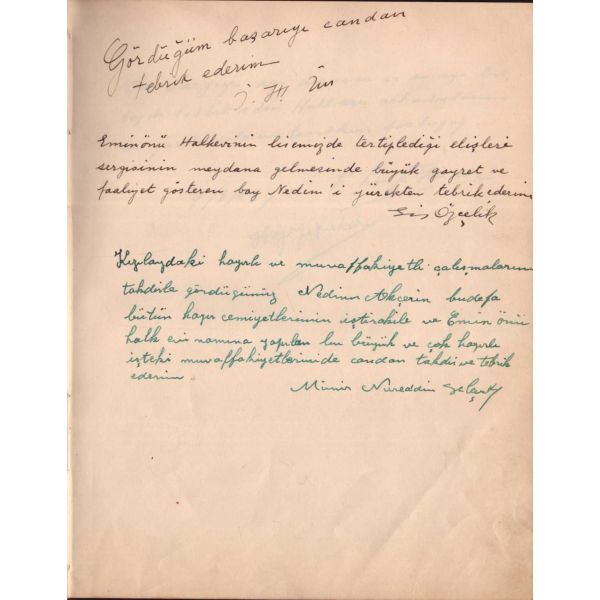 Gördüğüm başarıyı candan
tebrik ederim
İ. H. Ün
Eminönü Halkevinin lisemizde tertiplediği elişleri
sergisinin meydana gelmesinde büyük gayret ve
faaliyet gösteren bay Nedim'i yürekten tebrik ederim
Özçelik
Kızılaydaki hayırlı ve muvaffakiyetli çalışmalarını
takdirle gördüğümüz Nedim Akçerin budefa
bütün hayır cemiyetlerinin iştirakile ve Emin önü
halk evi namına yapılan bu büyük ve çok hayırlı
işteki muvaffakiyetlerinide candan takdir ve tebrik
ederim
Münir Nureddin Selçuk